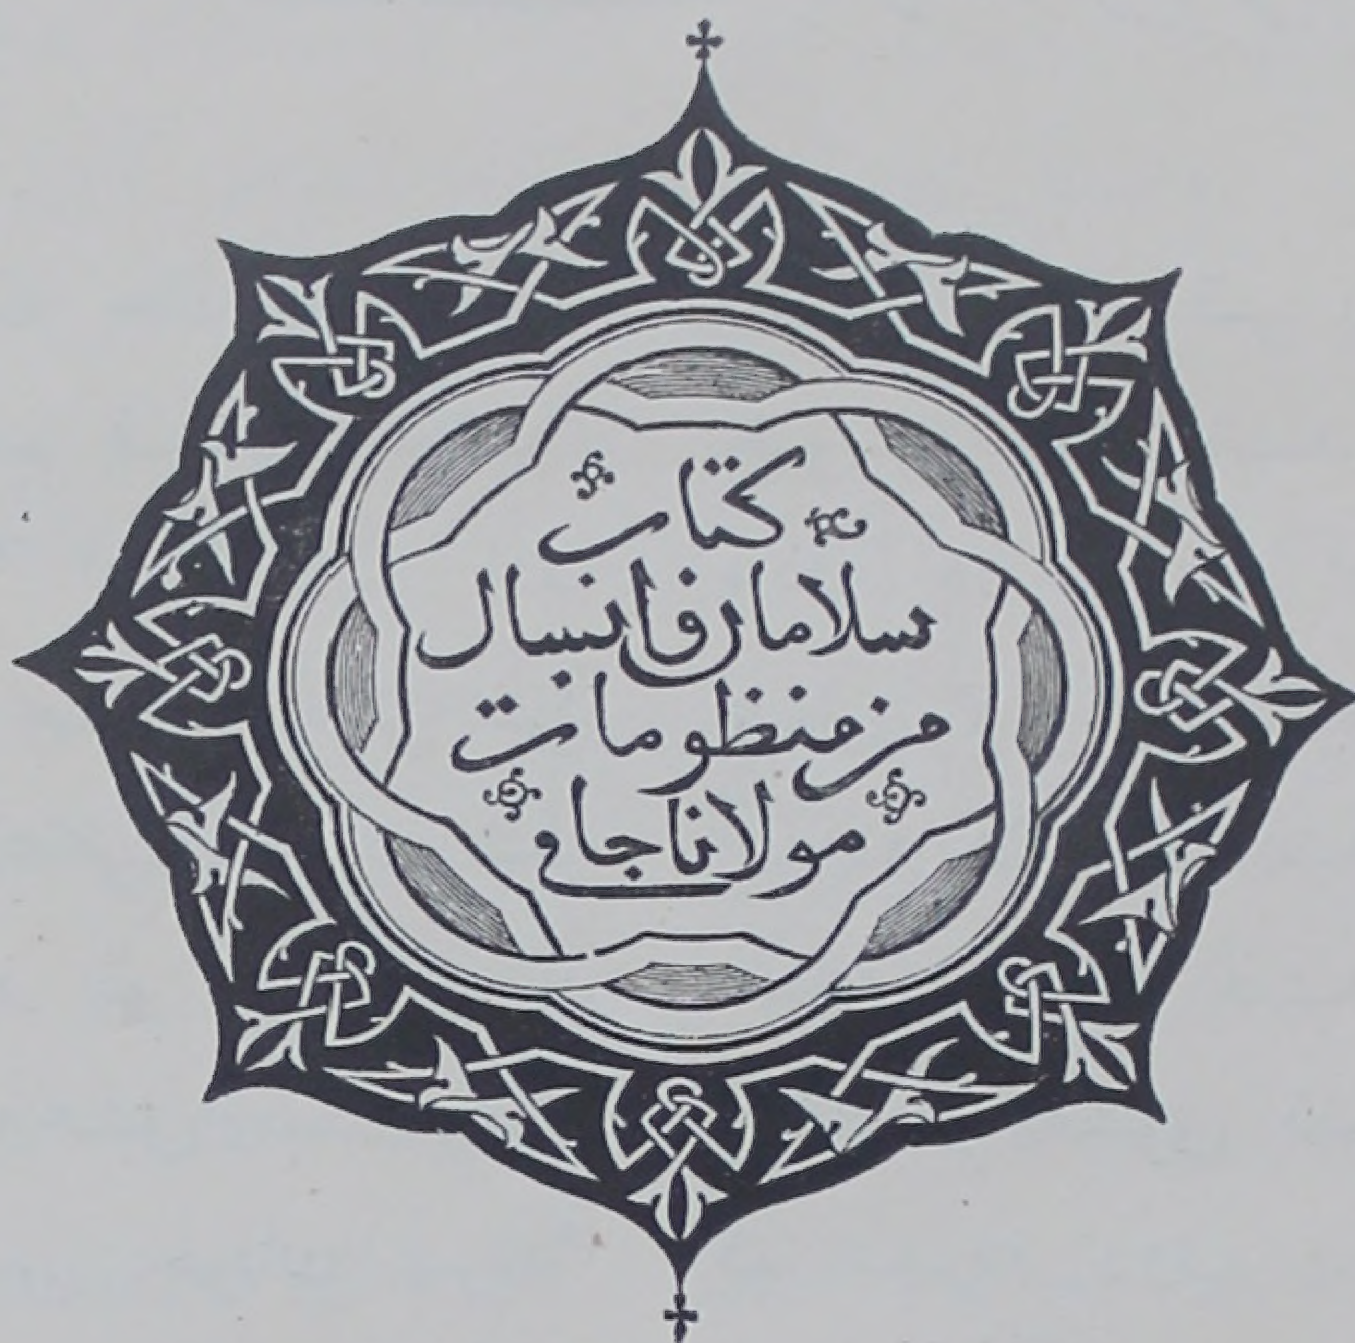 كتاب
سلامان و ابسال
من منظومات
مولانا جامی